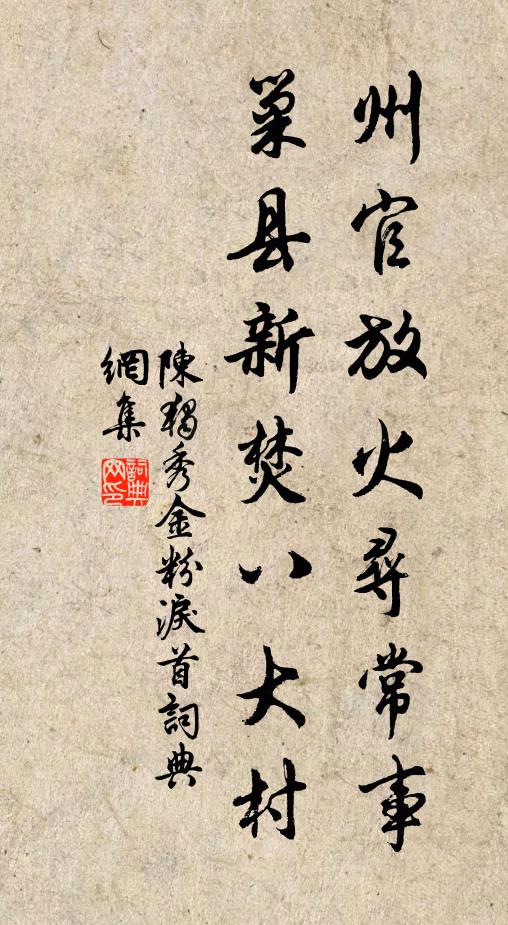 州官放火尋常事
巢县新焚八大村
陳獨秀金粉淚首詞典
網集
詞典
网印